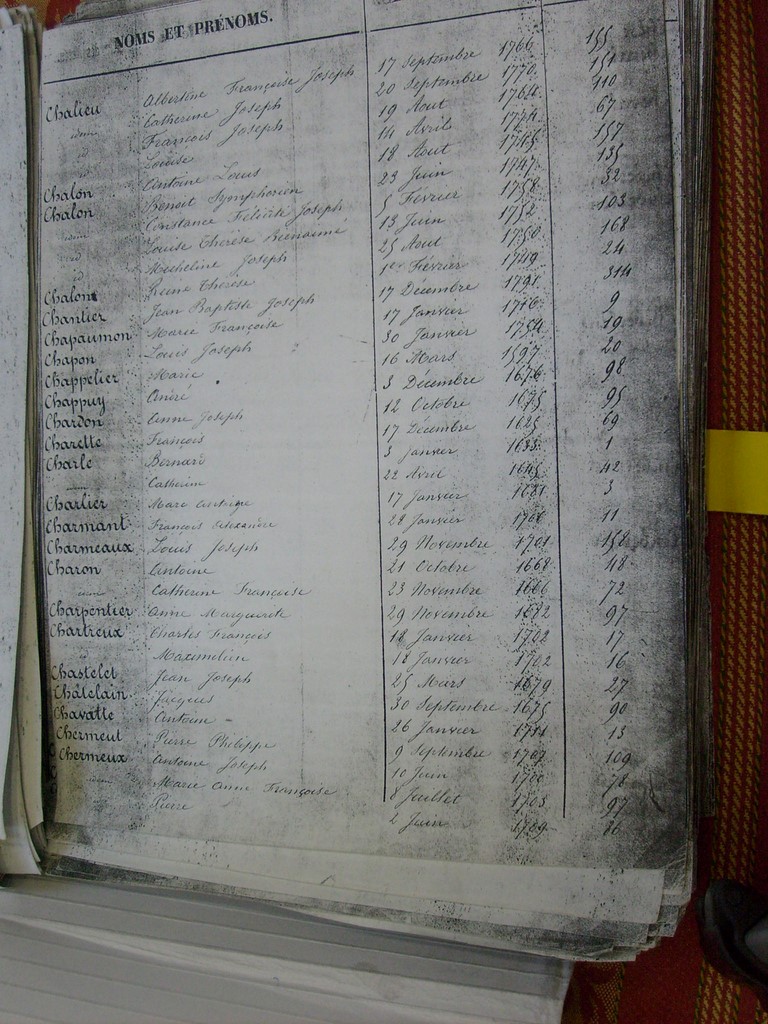 NOMS ET PRÉNOMS.
Chalieu Albertine Françoise Joseph 17 Septembre 1766 155
idem Catherine Joseph 20 Septembre 1770 151
id François Joseph 19 Aout 1764 110
Louise 14 Avril 1774 67
Chalon Antoine Louis 18 Aout 1745 157
Chalon Benoit Symphorien 23 Juin 1747 135
idem Constance Félicité Joseph 5 Février 1758 32
id Louise Thérèse Bienaimé 13 Juin 1752 103
id Micheline Joseph 25 Aout 1750 168
Chalont Reine Thérèse 1er Février 1749 24
Chantier Jean Baptiste Joseph 17 Décembre 1791 314
Chapaumon Marie Françoise 17 Janvier 1716 9
Chapon Louis Joseph 30 Janvier 1754 19
Chappelier Marie 16 Mars 1597 20
Chappuy André 3 Décembre 1676 98
Chardon Anne Joseph 12 Octobre 1675 95
Charette François 17 Décembre 1625 69
Charle Bernard 3 Janvier 1633 1
idem Catherine 22 Avril 1645 42
Charlier Marc Antoine 17 Janvier 1681 3
Charmant François Alexandre 28 Janvier 1766 11
Charmeaux Louis Joseph 29 Novembre 1701 158
Charon Antoine 21 Octobre 1668 48
idem Catherine Françoise 23 Novembre 1666 72
Charpentier Anne Marguerite 29 Novembre 1672 97
Chartreux Charles François 18 Janvier 1702 17
id Maximilien 18 Janvier 1702 16
Chastelet Jean Joseph 25 Mars 1679 27
Châtelain Jacques 30 Septembre 1675 90
Chavatte Antoine 26 Janvier 1711 13
Chermeut Pierre Philippe 9 Septembre 1707 109
Chermeux Antoine Joseph 10 Juin 1700 78
idem Marie Anne Françoise 8 Juillet 1703 97
Pierre 2 Juin 1789